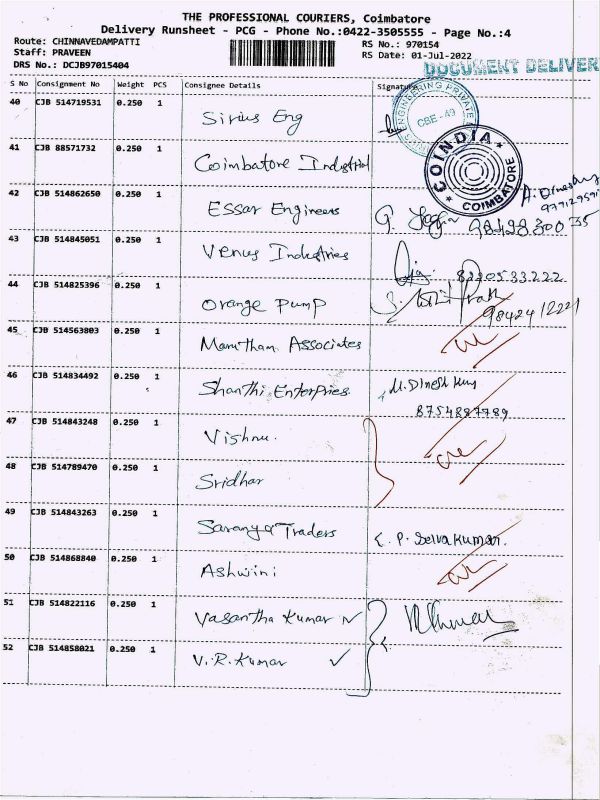 THE PROFESSIONAL COURIERS, Coimbatore
Delivery Runsheet - PCG - Phone No.:0422-3505555 - Page No.:4
Route: CHINNAVEDAMPATTI
RS No.: 970154
Staff: PRAVEEN
RS Date: 01-Jul-2022
DRS No.: DCJB97015404
DOCUMENT DELIVER
S No Consignment No Weight PCS Consignee Details Signature
40 CJB 514719531 0.250 1 Sirius Eng
ENGINEERING PRIVATE
CBE - 49
41 CJB 88571732 0.250 1 Coimbatore Industrial
COINDIA
COIMBATORE
42 CJB 514862650 0.250 1 Essar Engineers G.
43 CJB 514845051 0.250 1 Venus Industries
8220533222
44 CJB 514825396 0.250 1 Orange Pump
9842412221
45 CJB 514563803 0.250 1 Marutham Associates
46 CJB 514834492 0.250 1 Shanthi Enterpries M. Dinesh Kum
8754887789
47 CJB 514843248 0.250 1 Vishnu.
48 CJB 514789470 0.250 1 Sridhar
49 CJB 514843263 0.250 1 Saranya Traders P. Selvakumar.
50 CJB 514868840 0.250 1 Ashwini
51 CJB 514822116 0.250 1 Vasantha Kumar
52 CJB 514858021 0.250 1 V.R.Kumar